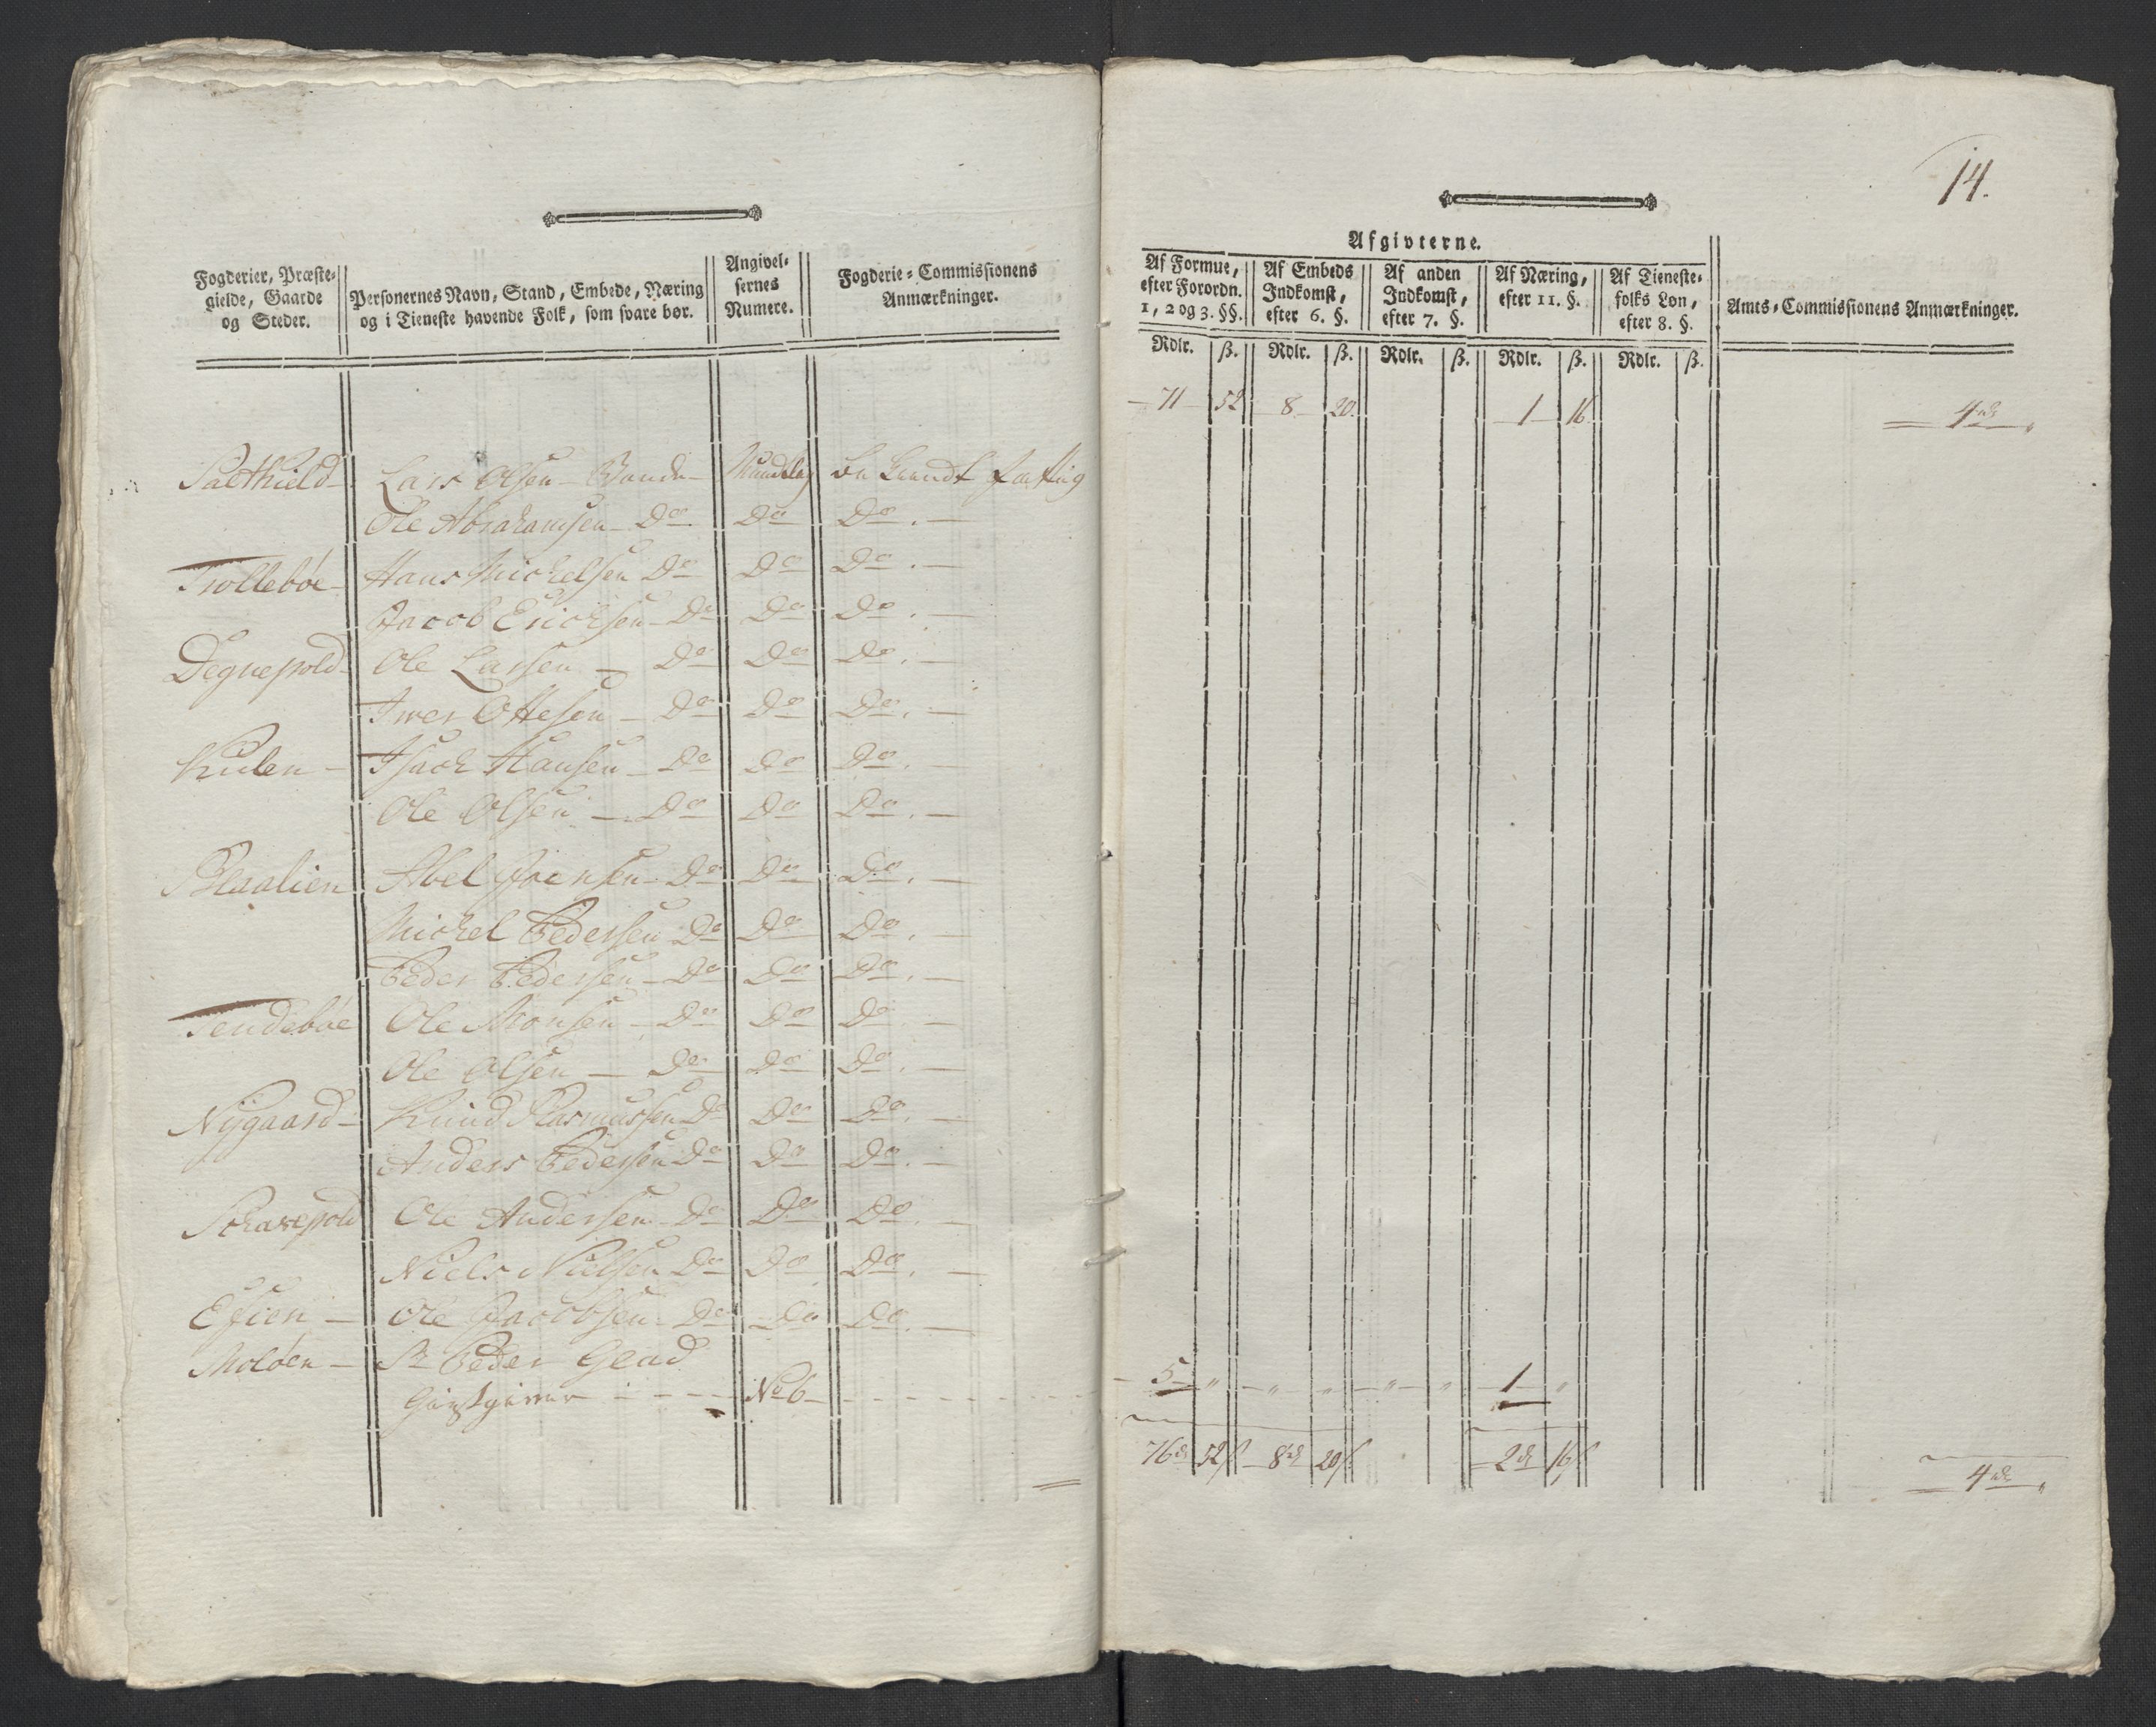 14.
Fogderier, Præste-
gielde, Gaarde
og Steder.
Personernes Navn, Stand, Embede, Næring
og i Tieneste havende Folk, som svare bør.
Angivel-
sernes
Numere.
Fogderie-Commissionens
Anmærkninger.
Afgivterne.
Af Formue,
efter Forordn.
1, 2 og 3. §§.
Af Embeds
Indkomst,
efter 6. §.
Af anden
Indkomst,
efter 7. §.
Af Næring,
efter 11. §.
Af Tieneste-
folks Løn,
efter 8. §.
Amts-Commissionens Anmærkninger.
Rdlr. ß. Rdlr. ß. Rdlr. ß. Rdlr. ß. Rdlr. ß.
71 52 8 20 1 16 4 rd
Lars Olsen - Bonde - Mundtlig
Ole Abrahamsen - Do Do Do. -
Trollebøe - Hans Michelsen Do Do Do. -
Jacob Erichsen - Do Do Do. -
Degnepold - Ole Larsen - Do Do Do. -
Iver Ottesen - Do Do Do. -
Hulen - Isach Hansen - Do Do Do. -
Ole Olsen - Do Do Do. -
Blaalien Abel Joensen - Do Do Do. -
Michel Pedersen Do Do Do. -
Peder Pedersen - Do Do Do. -
Tendebøe Ole Monsen - Do Do Do -
Ole Olsen - Do Do Do. -
Nygaard - Knud Rasmussen Do Do Do. -
Anders Pedersen Do Do Do. -
Scharepold Ole Andersen - Do Do Do. -
Niels Nielsen Do Do Do. -
Ole Jacobsen - Do Do Do. -
Moløen - Sr Peder Glad
Giestgiver - - - - No 6 - 5 " " " " " 1 "
76 rd 52 ß 8 rd 20 ß 2 rd 16 ß 4 rd "